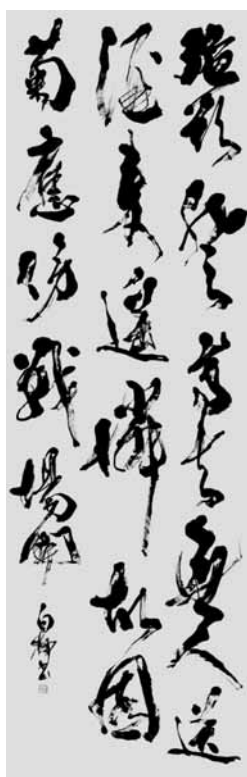 強欲登高去無人送
酒来遥憐故園
菊應傍戰場開
白 書